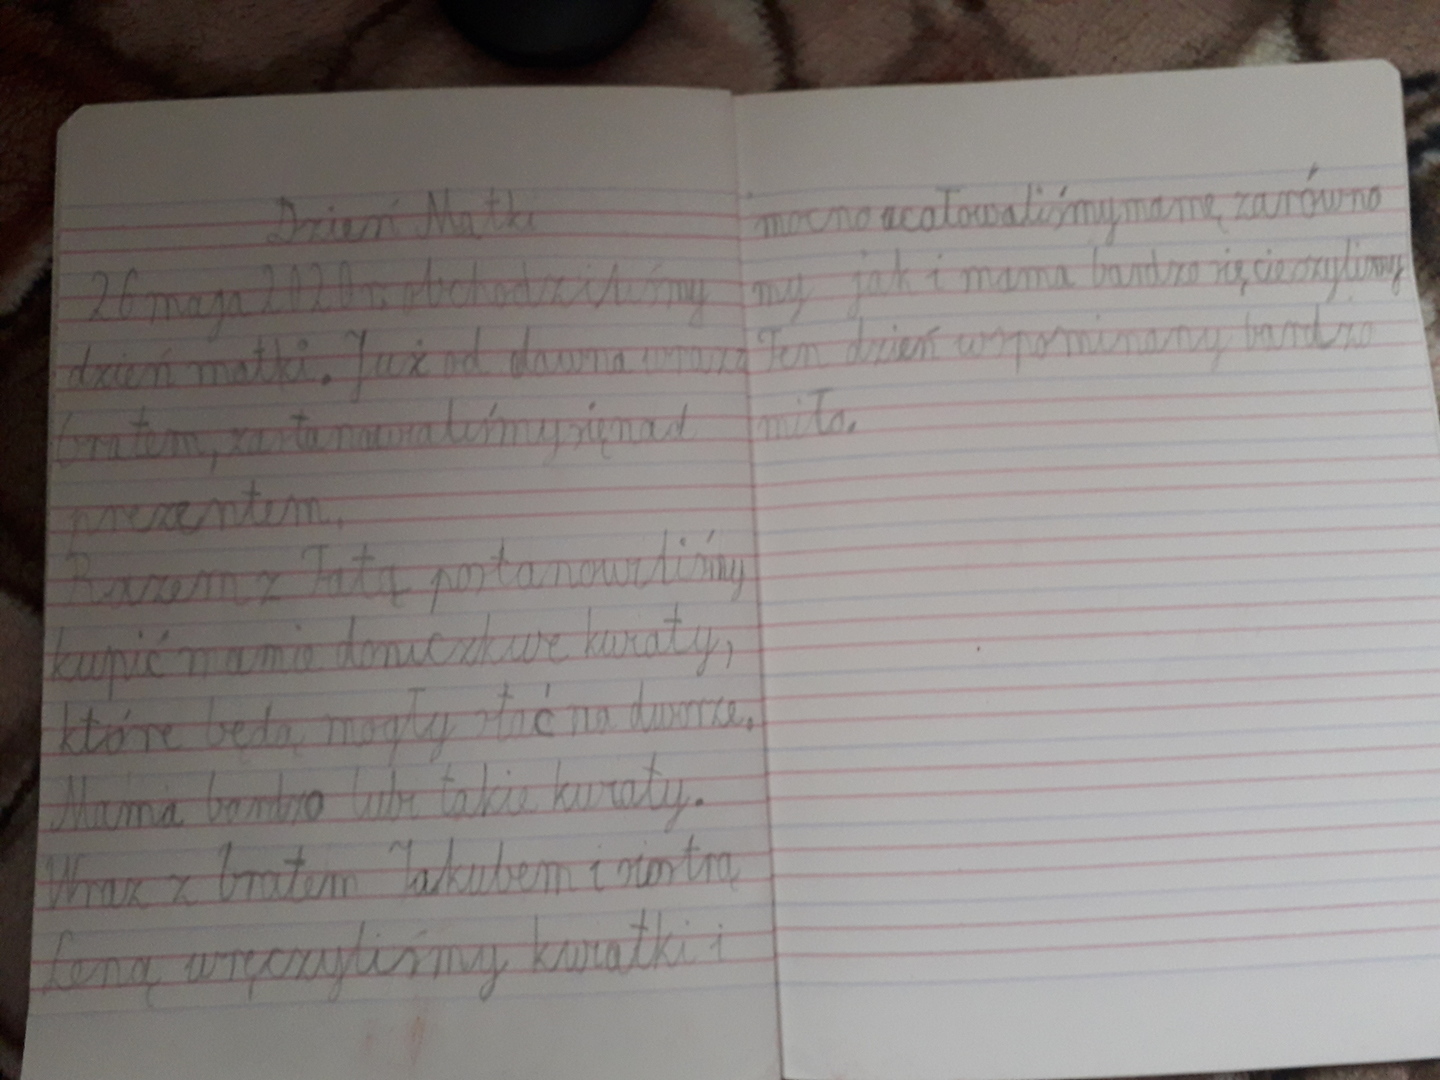 Dzień Matki
26 maja 2020 r. obchodziliśmy
dzień matki. Już od dawna wraz z
bratem, zastanawialiśmy się nad
prezentem.
Razem z Tatą postanowiliśmy
kupić mamie doniczkwe kwiaty,
które będą mogły stać na dworze.
Mama bardzo lubi takie kwiaty.
Wraz z bratem Jakubem i siostrą
Leną wręczyliśmy kwiatki i
mocno ucałowaliśmy mamę zarówno
my jak i mama bardzo się cieszyliśmy
Ten dzień wspominamy bardzo
miło.